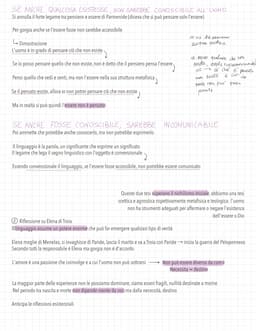 SE ANCHE QUALCOSA ESISTESSE, NON SAREBBE CONOSCIBILE ALL'UOMO
Si annulla il forte legame tra pensiero e essere di Parmenide (diceva che si può pensare solo l'essere)
Per gorgia anche se l'essere fosse non sarebbe accessibile
↳ Dimostrazione
L'uomo è in grado di pensare ciò che non esiste
Se io posso pensare quello che non esiste, non è detto che il pensiero pensa l'essere
Penso quello che vedi e senti, ma non l'essere nella sua struttura metafisica
Se il pensato esiste, allora io non potrei pensare ciò che non esiste
Ma in realtà si può quindi l'essere non è pensato
SE ANCHE FOSSE CONOSCIBILE, SAREBBE INCOMUNICABILE
Poi ammette che potrebbe anche conoscerlo, ma non potrebbe esprimerlo
Il linguaggio è la parola, un significante che esprime un significato
Il legame che lega il segno linguistico con l'oggetto è convenzionale
Essendo convenzionale il linguaggio, se l'essere fosse accessibile, non potrebbe essere comunicato
Queste due tesi esprimono il nichilismo iniziale, abbiamo una tesi
scettica e agnostica rispettivamente metafisica e teologica: l'uomo
non ha strumenti adeguati per affermare o negare l'esistenza
dell'essere o Dio
② Riflessione su Elena di Troia
Il linguaggio assume un potere enorme che può far emergere qualsiasi tipo di verità
Elena moglie di Menelao, si invaghisce di Paride, lascia il marito e va a Troia con Paride → inizia la guerra del Peloponneso
Secondo tutti la responsabile è Elena ma gorgia non è d'accordo.
L'amore è una passione che coinvolge e a cui l'uomo non può sottrarsi → Non può essere diversa da com'è
Necessità = destino
La maggior parte delle esperienze non le possiamo dominare, siamo esseri fragili, nullità destinate a morire
Nel periodo tra nascita e morte non dipende niente da noi ma dalla necessità, destino
Anticipa le riflessioni esistenziali